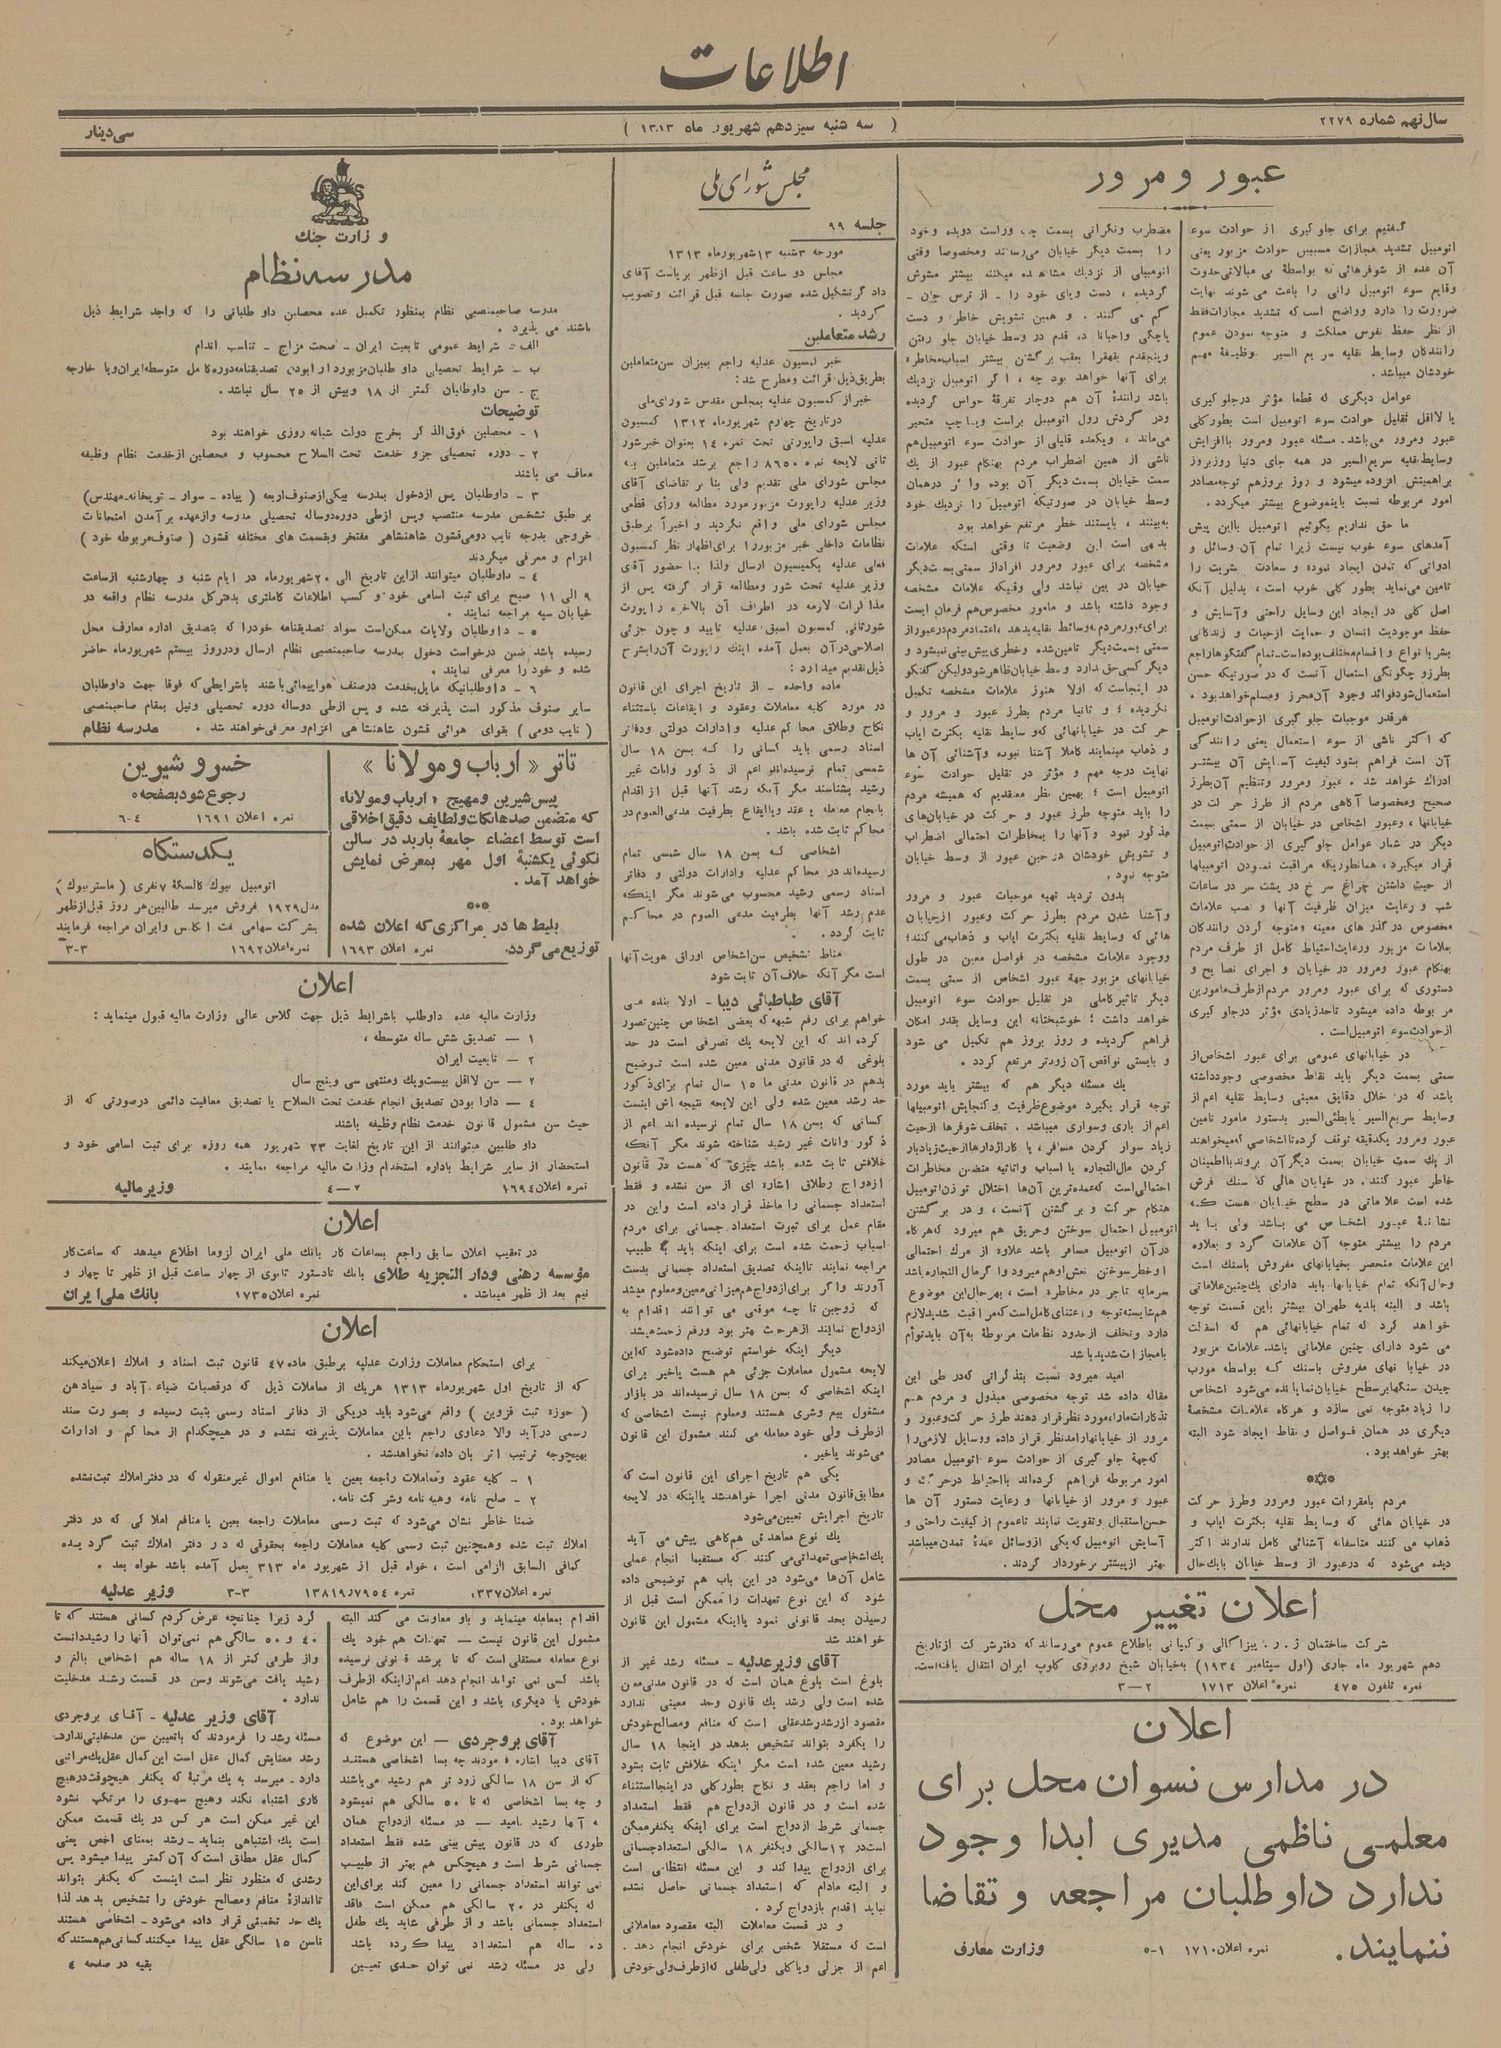 اطلاعات
سال نهم شماره ۲۲۷۹
( سه شنبه سیزدهم شهریور ماه ۱۳۱۳ )
سی دینار
عبور و مرور
گفتیم برای جلو گیری از حوادث سوء
اتومبیل تشدید مجازات مسببین حوادث مزبور یعنی
آن عده از شوفرهائی که بواسطهٔ بی مبالاتی حدوث
وقایع سوء اتومبیل رانی را باعث می شوند نهایت
ضرورت را دارد وواضح است که تشدید مجازات فقط
از نظر حفظ نفوس مملکت و متوجه نمودن عموم
رانندگان وسایط نقلیه سریع السیر بوظیفهٔ مهم
خودشان میباشد .
عوامل دیگری که قطعا مؤثر در جلو گیری
یا لااقل تقلیل حوادث سوء اتومبیل است بطور کلی
عبور ومرور می باشد. مسئله عبور ومرور با افزایش
وسایط نقلیه سریع السیر در همه جای دنیا روز بروز
براهمیتش افزوده میشود و روز بروز هم توجه مصادر
امور مربوطه نسبت باینموضوع بیشتر میگردد .
ما حق نداریم بگوئیم اتومبیل با این پیش
آمدهای سوء خوب نیست زیرا تمام آن وسائل و
ادواتی که تمدن ایجاد نموده و سعادت بشریت را
تامین می نماید بطور کلی خوب است ، بدلیل آنکه
اصل کلی در ایجاد این وسایل راحتی و آسایش و
حفظ موجودیت انسان و حمایت از حیات و زندگانی
بشر با نواع و اقسام مختلف بوده است ـ تمام گفتگوها راجع
بطرز و چگونگی استعمال آنست که در صورتیکه حسن
استعمال شود فوائد وجود آن محرز ومسلم خواهد بود .
هر قدر موجبات جلو گیری از حوادث اتومبیل
که اکثر ناشی از سوء استعمال یعنی رانندگی
آن است فراهم بشود کیفیت آسایش آن بیشتر
ادراک خواهد شد . عبور ومرور وتنظیم آن بطرز
صحیح ومخصوصا آگاهی مردم از طرز حرکت در
خیابانها ، وعبور اشخاص در خیابان از سمتی بسمت
دیگر در شمار عوامل جلو گیری از حوادث اتومبیل
قرار میگیرد ، همانطوریکه مراقبت نمودن اتومبیلها
از حیث داشتن چراغ سرخ در پشت سر در ساعات
شب و رعایت میزان ظرفیت آنها و نصب علامات
مخصوص در گذر های معینه ومتوجه کردن رانندگان
بعلامات مزبور ورعایت احتیاط کامل از طرف مردم
بهنگام عبور ومرور در خیابان و اجرای نصایح و
دستوری که برای عبور ومرور مردم از طرف مامورین
مربوطه داده میشود تا حد زیادی مؤثر در جلو گیری
از حوادث سوء اتومبیل است .
در خیابانهای عمومی برای عبور اشخاص از
سمتی بسمت دیگر باید نقاط مخصوصی وجود داشته
باشد که در خلال دقایق معینی وسایط نقلیه اعم از
وسایط سریع السیر یا بطئی السیر بدستور مامور تامین
عبور ومرور یکدقیقه توقف کرده تا اشخاصی که میخواهند
از یک سمت خیابان بسمت دیگر آن بروند با اطمینان
خاطر عبور کنند . در خیابان هائی که سنک فرش
شده است علاماتی در سطح خیابان هست که
نشانهٔ عبور اشخاص می باشد ولی باید
مردم را بیشتر متوجه آن علامات کرد و بعلاوه
این علامات منحصر بخیابانهای مفروش باسنک است
وحال آنکه تمام خیابانها باید دارای یکچنین علاماتی
باشد و البته بلدیه طهران بیشتر باین قسمت توجه
خواهد کرد که تمام خیابانهائی هم که اسفالت
می شود دارای چنین علاماتی باشد. علامات مزبور
در خیابانهای مفروش باسنک که بواسطه مورب
چیدن سنگها بر سطح خیابان نمایانده می شود اشخاص
را زیاد متوجه نمی سازد و هرگاه علامات مشخصهٔ
دیگری در همان فواصل و نقاط ایجاد شود البته
بهتر خواهد بود .
مردم بامقررات عبور ومرور وطرز حرکت
در خیابان هائی که وسایط نقلیه بکثرت ایاب و
ذهاب می کنند متاسفانه آشنائی کامل ندارند اکثر
دیده می‌شود که در عبور از وسط خیابان بایک حال
مضطرب ونگرانی بسمت چپ وراست دویده وخود
را بسمت دیگر خیابان می رسانند ومخصوصا وقتی
اتومبیلی از نزدیک مشاهده میکنند بیشتر مشوش
گردیده ، دست وپای خود را ـ از ترس جان ـ
گم می کنند . و همین تشویش خاطر و دست
پاچگی واحیانا دو قدم در وسط خیابان جلو رفتن
وپنجقدم بقهقرا بعقب برگشتن بیشتر اسباب مخاطره
برای آنها خواهد بود چه ، اگر اتومبیل نزدیک
باشد رانندهٔ آن هم دوچار تفرقهٔ حواس گردیده
ودر گردش رول اتومبیل براست ویا چپ متحیر
می ماند ، ویکعده قلیلی از حوادث سوء اتومبیل هم
ناشی از همین اضطراب مردم بهنگام عبور از یک
سمت خیابان بسمت دیگر آن بوده واگر در همان
وسط خیابان در صورتیکه اتومبیل را نزدیک خود
به بینند ، بایستند خطر مرتفع خواهد بود
بدیهی است این وضعیت تا وقتی استکه علامات
مشخصه برای عبور ومرور افراد از سمتی بسمت دیگر
خیابان در بین نباشد ولی وقتیکه علامات مشخصه
وجود داشته باشد و مامور مخصوص هم فرمان ایست
برای عبور مردم به وسائط نقلیه بدهد ، اعتماد مردم در عبور از
سمتی بسمت دیگر تامین شده و خطری پیش بینی نمیشود و
دیگر کسی حق ندارد وسط خیابان ظاهر شود ولیکن گفتگو
در اینجاست که اولا هنوز علامات مشخصه تکمیل
نگردیده ؛ و ثانیا مردم بطرز عبور و مرور و
حرکت در خیابانهائی که وسایط نقلیه بکثرت ایاب
و ذهاب مینمایند کاملا آشنا نبوده و آشنائی آن ها
نهایت درجه مهم و مؤثر در تقلیل حوادث سوء
اتومبیل است ؛ بهمین نظر معتقدیم که همیشه مردم
را باید متوجه طرز عبور و حرکت در خیابان‌های
مذکور نمود وآنها را بمخاطرات احتمالی اضطراب
و تشویش خودشان در حین عبور از وسط خیابان
متوجه نمود ،
بدون تردید تهیه موجبات عبور و مرور
وآشنا شدن مردم بطرز حرکت وعبور از خیابان
هائی که وسایط نقلیه بکثرت ایاب و ذهاب می کنند؛
ووجود علامات مشخصه در فواصل معین در طول
خیابانهای مزبور جهة عبور اشخاص از سمتی بسمت
دیگر تاثیر کاملی در تقلیل حوادث سوء اتومبیل
خواهد داشت ؛ خوشبختانه این وسایل بقدر امکان
فراهم گردیده و روز بروز هم تکمیل می شود
و بایستی نواقص آن زودتر مرتفع گردد .
یک مسئله دیگر هم که بیشتر باید مورد
توجه قرار بگیرد موضوع ظرفیت و گنجایش اتومبیلها
اعم از باری وسواری میباشد . تخلف شوفرها از حیث
زیاد سوار کردن مسافر ، یا کاراژدارها از حیث زیاد بار
کردن مال التجاره یا اسباب واثاثیه متضمن مخاطرات
احتمالی است که عمده ترین آن‌ها اختلال توازن اتومبیل
هنگام حرکت و برگشتن آنست ، و در برگشتن
اتومبیل احتمال سوختن وحریق هم میرود که هر گاه
در آن اتومبیل مسافر باشد علاوه از مرک احتمالی
او خطر سوختن نعش او هم میرود واگر مال التجاره باشد
سرمایه تاجر در مخاطره است ، بهر حال این موضوع
هم شایسته توجه و اعتنای کامل است که مراقبت شدید لازم
دارد وتخلف از حدود نظامات مربوطه به آن باید توأم
با مجازات شدید باشد
امید میرود نسبت بتذکراتی که در طی این
مقاله داده شد توجه مخصوصی مبذول و مردم هم
تذکارات ما را مورد نظر قرار دهند طرز حرکت وعبور و
مرور از خیابانها را مد نظر قرار داده ووسایل لازمی را
که جهة جلو گیری از حوادث سوء اتومبیل مصادر
امور مربوطه فراهم کرده اند با احتیاط در حرکت و
عبور و مرور از خیابانها و رعایت دستور آن ها
حسن استقبال وتقویت نمایند تا عموم از کیفیت راحتی و
آسایش اتومبیل که یکی از وسائل عمدهٔ تمدن میباشد
بهتر از پیشتر برخوردار گردند .
اعلان تغییر محل
دهم شهریور ماه جاری (اول سپتامبر ۱۹۳۴) به خیابان شیخ روبروی کلوپ ایران انتقال یافته است.
نمره تلفون ۴۷۵ نمره اعلان ۱۷۱۳ ۲—۳
اعلان
در مدارس نسوان محل برای
معلمی ناظمی مدیری ابدا وجود
ندارد داوطلبان مراجعه و تقاضا
ننمایند.
نمره اعلان ۱۷۱۰ ۱-۵ وزارت معارف
مجلس شورای ملی
جلسه ۹۹
مورخه ۳شنبه ۱۳ شهریورماه ۱۳۱۳
مجلس دو ساعت قبل از ظهر بریاست آقای
دادگر تشکیل شده صورت جلسه قبل قرائت و تصویب
گردید .
رشد متعاملین
خبر کمیسیون عدلیه راجع بمیزان سن متعاملین
بطریق ذیل قرائت ومطرح شد :
خبر از کمیسیون عدلیه بمجلس مقدس شورای ملی
در تاریخ چهارم شهریور ماه ۱۳۱۲ کمیسیون
عدلیه اسبق راپورتی تحت نمره ۱۴ بعنوان خبر شور
ثانی لایحه نمره ۸۶۵۰ راجع برشد متعاملین به
مجلس شورای ملی تقدیم ولی بنا بر تقاضای آقای
وزیر عدلیه راپورت مزبور مورد مطالعه ورأی قطعی
مجلس شورای ملی واقع نگردید و اخیراً برطبق
نظامات داخلی خبر مزبور را برای اظهار نظر کمیسیون
فعلی عدلیه بکمیسیون ارسال ولذا با حضور آقای
وزیر عدلیه تحت شور ومطالعه قرار گرفته پس از
مذاکرات لازمه در اطراف آن بالاخره راپورت
شورثانی کمیسیون اسبق عدلیه تایید و چون جزئی
اصلاحی در آن بعمل آمده اینک راپورت آن را بشرح
ذیل تقدیم میدارد :
ماده واحده ـ از تاریخ اجرای این قانون
در مورد کلیه معاملات وعقود و ایقاعات باستثناء
نکاح وطلاق محاکم عدلیه و ادارات دولتی ودفاتر
اسناد رسمی باید کسانی را که بسن ۱۸ سال
شمسی تمام نرسیده‌اند اعم از ذکور واناث غیر
رشید بشناسند مگر آنکه رشد آنها قبل از اقدام
بانجام معامله یا عقد ویا ایقاع بطرفیت مدعی العموم در
محاکم ثابت شده باشد .
اشخاصی که بسن ۱۸ سال شمسی تمام
رسیده‌اند در محاکم عدلیه وادارات دولتی و دفاتر
اسناد رسمی رشید محسوب می شوند مگر اینکه
عدم رشد آنها بطرفیت مدعی العموم در محاکم
ثابت گردد .
مناط تشخیص سن اشخاص اوراق هویت آنها
است مگر آنکه خلاف آن ثابت شود
آقای طباطبائی دیبا ـ اولا بنده می
خواهم برای رفع شبهه که بعضی اشخاص چنین تصور
کرده اند که این لایحه یک تصرفی است در حد
بلوغی که در قانون مدنی معین شده است توضیح
بدهم در قانون مدنی ما ۱۵ سال تمام برای ذکور
حد رشد معین شده ولی این لایحه نتیجه اش اینست
کسانی که بسن ۱۸ سال تمام نرسیده اند اعم از
ذکور واناث غیر رشید شناخته شوند مگر آنکه
خلافش ثابت شده باشد چیزی که هست در قانون
ازدواج وطلاق اشاره ای از سن نشده و فقط
استعداد جسمانی را ماخذ قرار داده است واین در
مقام عمل برای ثبوت استعداد جسمانی برای مردم
اسباب زحمت شده است برای اینکه باید به طبیب
مراجعه نمایند تا اینکه تصدیق استعداد جسمانی بدست
آورند واگر برای ازدواج هم میزانی معین ومعلوم میشد
که زوجین تا چه موقعی می توانند اقدام به
ازدواج نمایند از هر حیث بهتر بود ورفع زحمت میشد
دیگر اینکه خواستم توضیح داده شود که این
لایحه مشمول معاملات جزئی هم هست یا خیر برای
اینکه اشخاصی که بسن ۱۸ سال نرسیده‌اند در بازار
مشغول بیع وشری هستند ومعلوم نیست اشخاصی که
از طرف ولی خود معامله می کنند مشمول این قانون
می شوند یا خیر .
یکی هم تاریخ اجرای این قانون است که
مطابق قانون مدنی اجرا خواهد شد یا اینکه در لایحه
تاریخ اجرایش تعیین می‌شود
یک نوع معاهداتی هم گاهی پیش می آید
یک اشخاصی تعهداتی می کنند که مستقیما انجام عملی
شامل آن‌ها می‌شود در این باب هم توضیحی داده
شود که این نوع تعهدات را ممکن است قبل از
رسیدن بحد قانونی نمود یا اینکه مشمول این قانون
خواهند شد
آقای وزیر عدلیه ـ مسئله رشد غیر از
بلوغ است بلوغ همان است که در قانون مدنی معین
شده است ولی رشد یک قانون وحد معینی ندارد
مقصود از رشد رشد عقلی است که منافع ومصالح خودش
را یکفرد بتواند تشخیص بدهد در اینجا ۱۸ سال
رشید معین شده است مگر اینکه خلافش ثابت بشود
و اما راجع بعقد و نکاح بطور کلی در اینجا استثناء
شده است و در قانون ازدواج هم فقط استعداد
جسمانی شرط ازدواج است برای اینکه یکنفر ممکن
است در ۱۲ سالگی ویکنفر ۱۸ سالگی استعداد جسمانی
برای ازدواج پیدا کند و این مسئله انتظامی است
و البته مادام که استعداد جسمانی حاصل نشده
نباید اقدام بازدواج کرد .
و در قسمت معاملات البته مقصود معاملاتی
است که مستقلا شخص برای خودش انجام دهد .
اعم از جزئی ویا کلی ولی طفلی که از طرف ولی خودش
وزارت جنک
مدرسه نظام
مدرسه صاحبمنصبی نظام بمنظور تکمیل عده محصلین داوطلبانی را که واجد شرایط ذیل
باشند می پذیرد .
الف ـ شرایط عمومی تابعیت ایران ـ صحت مزاج ـ تناسب اندام
ب ـ شرایط تحصیلی داوطلبان مزبور دارا بودن تصدیقنامه دوره کامل متوسطه ایران ویا خارجه
ج ـ سن داوطلبان کمتر از ۱۸ وبیش از ۲۵ سال نباشد .
توضیحات
۱ ـ محصلین فوق الذکر بخرج دولت شبانه روزی خواهند بود
۲ ـ دوره تحصیلی جزو خدمت تحت السلاح محسوب و محصلین از خدمت نظام وظیفه
معاف می باشند
۳ ـ داوطلبان پس از دخول بمدرسه بیکی از صنوف اربعه ( پیاده ـ سوار ـ توپخانه ـ مهندس)
بر طبق تشخص مدرسه منتصب وپس از طی دوره دوساله تحصیلی مدرسه واز عهده بر آمدن امتحانات
خروجی بدرجه نایب دومی قشون شاهنشاهی مفتخر وبقسمت های مختلفه قشون ( صنوف مربوطه خود )
اعزام و معرفی میگردند
۴ ـ داوطلبان میتوانند از این تاریخ الی ۲۰ شهریور ماه در ایام شنبه و چهارشنبه از ساعت
۹ الی ۱۱ صبح برای ثبت اسامی خود و کسب اطلاعات کاملتری بدفتر کل مدرسه نظام واقعه در
خیابان سپه مراجعه نمایند .
۵ ـ داوطلبان ولایات ممکن است سواد تصدیقنامه خود را که بتصدیق اداره معارف محل
رسیده باشد ضمن درخواست دخول بمدرسه صاحبمنصبی نظام ارسال ودر روز بیستم شهریور ماه حاضر
شده و خود را معرفی نمایند .
۶ ـ داوطلبانیکه مایل بخدمت در صنف هواپیمائی باشند باشرایطی که فوقا جهت داوطلبان
سایر صنوف مذکور است پذیرفته شده و پس از طی دوساله دوره تحصیلی ونیل بمقام صاحبمنصبی
( نایب دومی ) بقوای هوائی قشون شاهنشاهی اعزام و معرفی خواهند شد . مدرسه نظام
تاتر « ارباب و مولانا »
پیس شیرین و مهیج «ارباب و مولانا»
که متضمن صدها نکات و لطایف دقیق اخلاقی
است توسط اعضاء جامعهٔ باربد در سالن
نکوئی یکشنبهٔ اول مهر بمعرض نمایش
خواهد آمد .
بلیط ها در مراکزی که اعلان شده
توزیع می گردد. نمره اعلان ۱۶۹۳
خسرو شیرین
رجوع شود بصفحه ۵
نمره اعلان ۱۶۹۱ ۴-۶
یکدستگاه
اتومبیل بیوک کالسکهٔ ۷ نفری ( ماستر بیوک )
مدل ۱۹۲۹ بفروش میرسد طالبین هر روز قبل از ظهر
بشرکت سهامی نفت انگلیس وایران مراجعه فرمایند
نمره اعلان ۱۶۹۲ ۳-۳
اعلان
وزارت مالیه عده داوطلب باشرایط ذیل جهت کلاس عالی وزارت مالیه قبول مینماید :
۱ — تصدیق شش ساله متوسطه ،
۲ — تابعیت ایران
۳ — سن لااقل بیست ویک ومنتهی سی وپنج سال
۴ — دارا بودن تصدیق انجام خدمت تحت السلاح یا تصدیق معافیت دائمی در صورتی که از
حیث سن مشمول قانون خدمت نظام وظیفه باشند
داوطلبین میتوانند از این تاریخ لغایت ۲۳ شهریور همه روزه برای ثبت اسامی خود و
استحضار از سایر شرایط باداره استخدام وزارت مالیه مراجعه نمایند .
نمره اعلان ۱۶۹۴ ۲—۴ وزیر مالیه
اعلان
در تعقیب اعلان سابق راجع بساعات کار بانک ملی ایران لزوما اطلاع میدهد که ساعت کار
مؤسسه رهنی ودار التجزیه طلای بانک تا دستور ثانوی از چهار ساعت قبل از ظهر تا چهار و
نیم بعد از ظهر میباشد . نمره اعلان ۱۷۳۵ بانک ملی ایران
اعلان
برای استحکام معاملات وزارت عدلیه برطبق ماده ۴۷ قانون ثبت اسناد و املاک اعلان میکند
که از تاریخ اول شهریور ماه ۱۳۱۳ هریک از معاملات ذیل که در قصبات ضیاء آباد و سیادهن
( حوزه ثبت قزوین ) واقع می‌شود باید در یکی از دفاتر اسناد رسمی بثبت رسیده و بصورت سند
رسمی در آید والا دعاوی راجع باین معاملات پذیرفته نشده و در هیچکدام از محاکم و ادارات
بهیچوجه ترتیب اثر بان داده نخواهد شد .
۱ ـ کلیه عقود ومعاملات راجعه بعین یا منافع اموال غیر منقوله که در دفتر املاک ثبت نشده
۲ ـ صلح نامه وهبه نامه وشرکت نامه.
ضمنا خاطر نشان می‌شود که ثبت رسمی معاملات راجعه بعین یا منافع املاکی که در دفتر
املاک ثبت شده وهمچنین ثبت رسمی کلیه معاملات راجعه بحقوقی که در دفتر املاک ثبت گردیده
کمافی السابق الزامی است ، خواه قبل از شهریور ماه ۳۱۳ بعمل آمده باشد خواه بعد .
۳-۳ وزیر عدلیه
اقدام بمعامله مینماید و باو معاونت می کند البته
مشمول این قانون نیست — تعهدات هم خود یک
نوع معامله مستقلی است که تا برشد قانونی نرسیده
باشد کسی نمی تواند انجام دهد اعم از اینکه از طرف
خودش یا دیگری باشد و این قسمت را هم شامل
خواهد بود .
آقای بروجردی — این موضوع که
آقای دیبا اشاره فرمودند چه بسا اشخاصی هستند
که از سن ۱۸ سالگی زود تر هم رشید می‌باشند
و چه بسا اشخاصی که تا ۵۰ سالگی هم نمیشود
به آنها رشید نامید — در مسئله ازدواج همان
طوری که در قانون پیش بینی شده فقط استعداد
جسمانی شرط است و هیچکس هم بهتر از طبیب
نمی تواند استعداد جسمانی را معین کند برای این
که یکنفر در ۲۰ سالگی هم ممکن است فاقد
استعداد جسمانی باشد و از طرفی شاید یک طفل
ده ساله هم استعداد پیدا کرده باشد
ولی در مسئله رشد نمی توان حدی تعیین
کرد زیرا چنانچه عرض کردم کسانی هستند که تا
۴۰ و ۵۰ سالگی هم نمی‌توان آنها را رشید دانست
واز طرفی کمتر از ۱۸ ساله هم اشخاص بالغ و
رشید یافت می‌شوند وسن در قسمت رشد مدخلیت
ندارد .
آقای وزیر عدلیه ـ آقای بروجردی
مسئله رشد را فرمودند که با تعیین سن مدخلیتی ندارد.
رشد معنایش کمال عقل است این کمال عقل یک مراتبی
دارد ـ میرسد به یک مرتبهٔ که یکنفر هیچوقت در هیچ
کاری اشتباه نکند وهیچ سهوی را مرتکب نشود
این غیر ممکن است هر کس در یک قسمت ممکن
است یک اشتباهی بنماید ـ رشد بمعنای اخص یعنی
کمال عقل مطلق است که آن کمتر پیدا میشود پس
رشدی که منظور نظر است اینست که یکنفر بتواند
تا اندازهٔ منافع ومصالح خودش را تشخیص بدهد لذا
یک حد تخمینی قرار داده می‌شود ـ اشخاصی هستند
تا سن ۱۵ سالگی عقل پیدا میکنند کسانی هم هستند که
بقیه در صفحه ۴